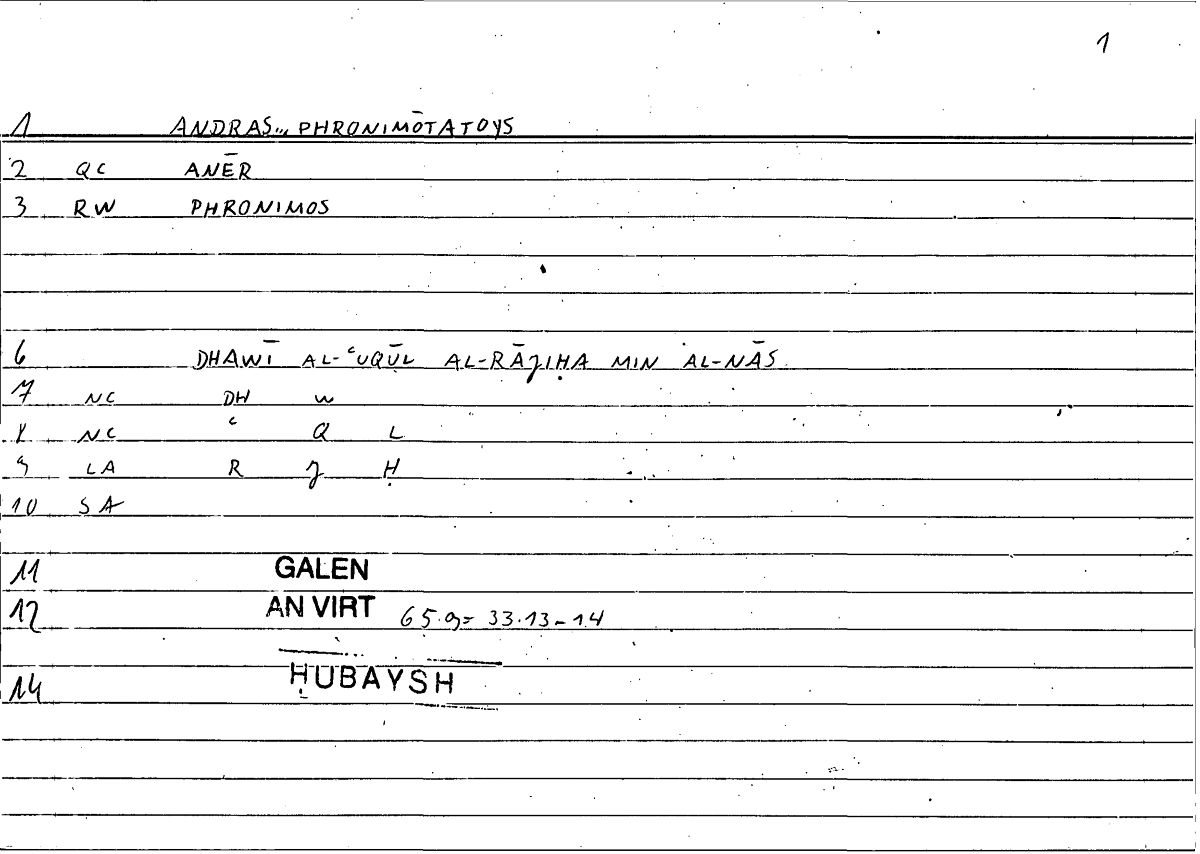 1
1 ANDRAS... PHRONIMŌTATOYS
2 QC ANĒR
3 RW PHRONIMOS
6 DHAWĪ AL-ʿUQŪL AL-RĀJIḤA MIN AL-NĀS
7 NC DH W
8 NC ʿ Q L
9 LA R J Ḥ
10 SA
11 GALEN
12 AN VIRT 65.9 = 33.13-14
14 ḤUBAYSH